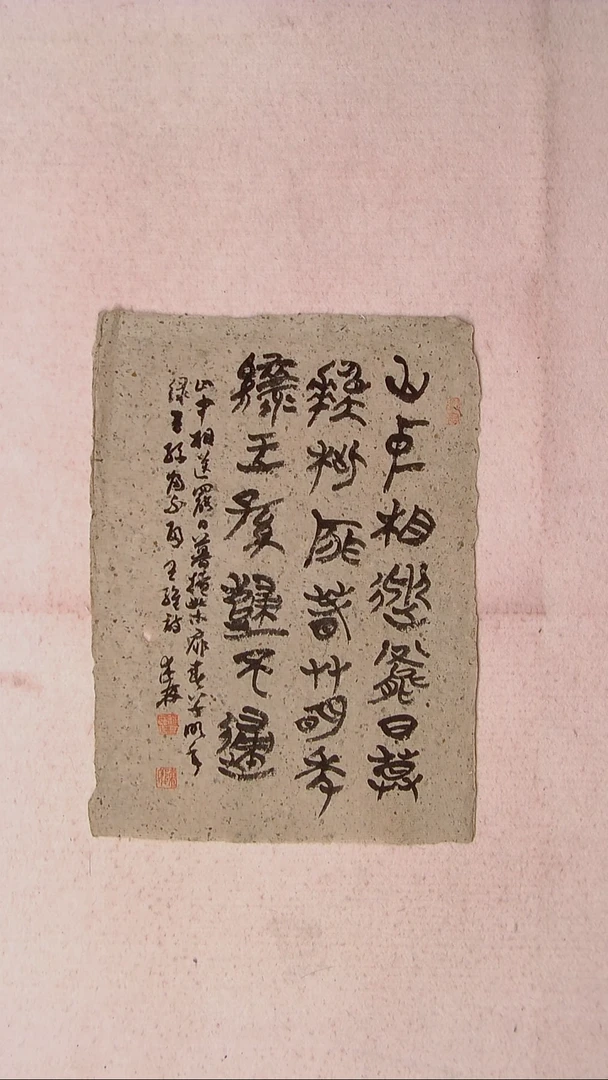 山中相送罷日暮
掩柴扉春草明年
綠王孫歸不歸
山中相送罷日暮掩柴扉春草明年
綠王孫歸不歸王維詩